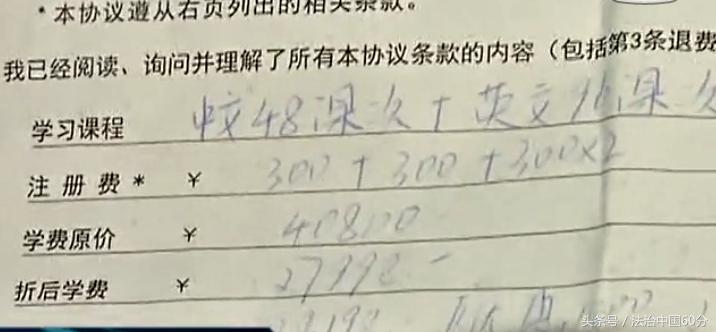 * 本协议遵从右页列出的相关条款。
我已经阅读、询问并理解了所有本协议条款的内容（包括第3条退费
学习课程 中文48课次+英文96课次
注册费* ¥ 300+300+300×2
学费原价 ¥ 40800
折后学费 ¥
头条号 / 法治中国60分